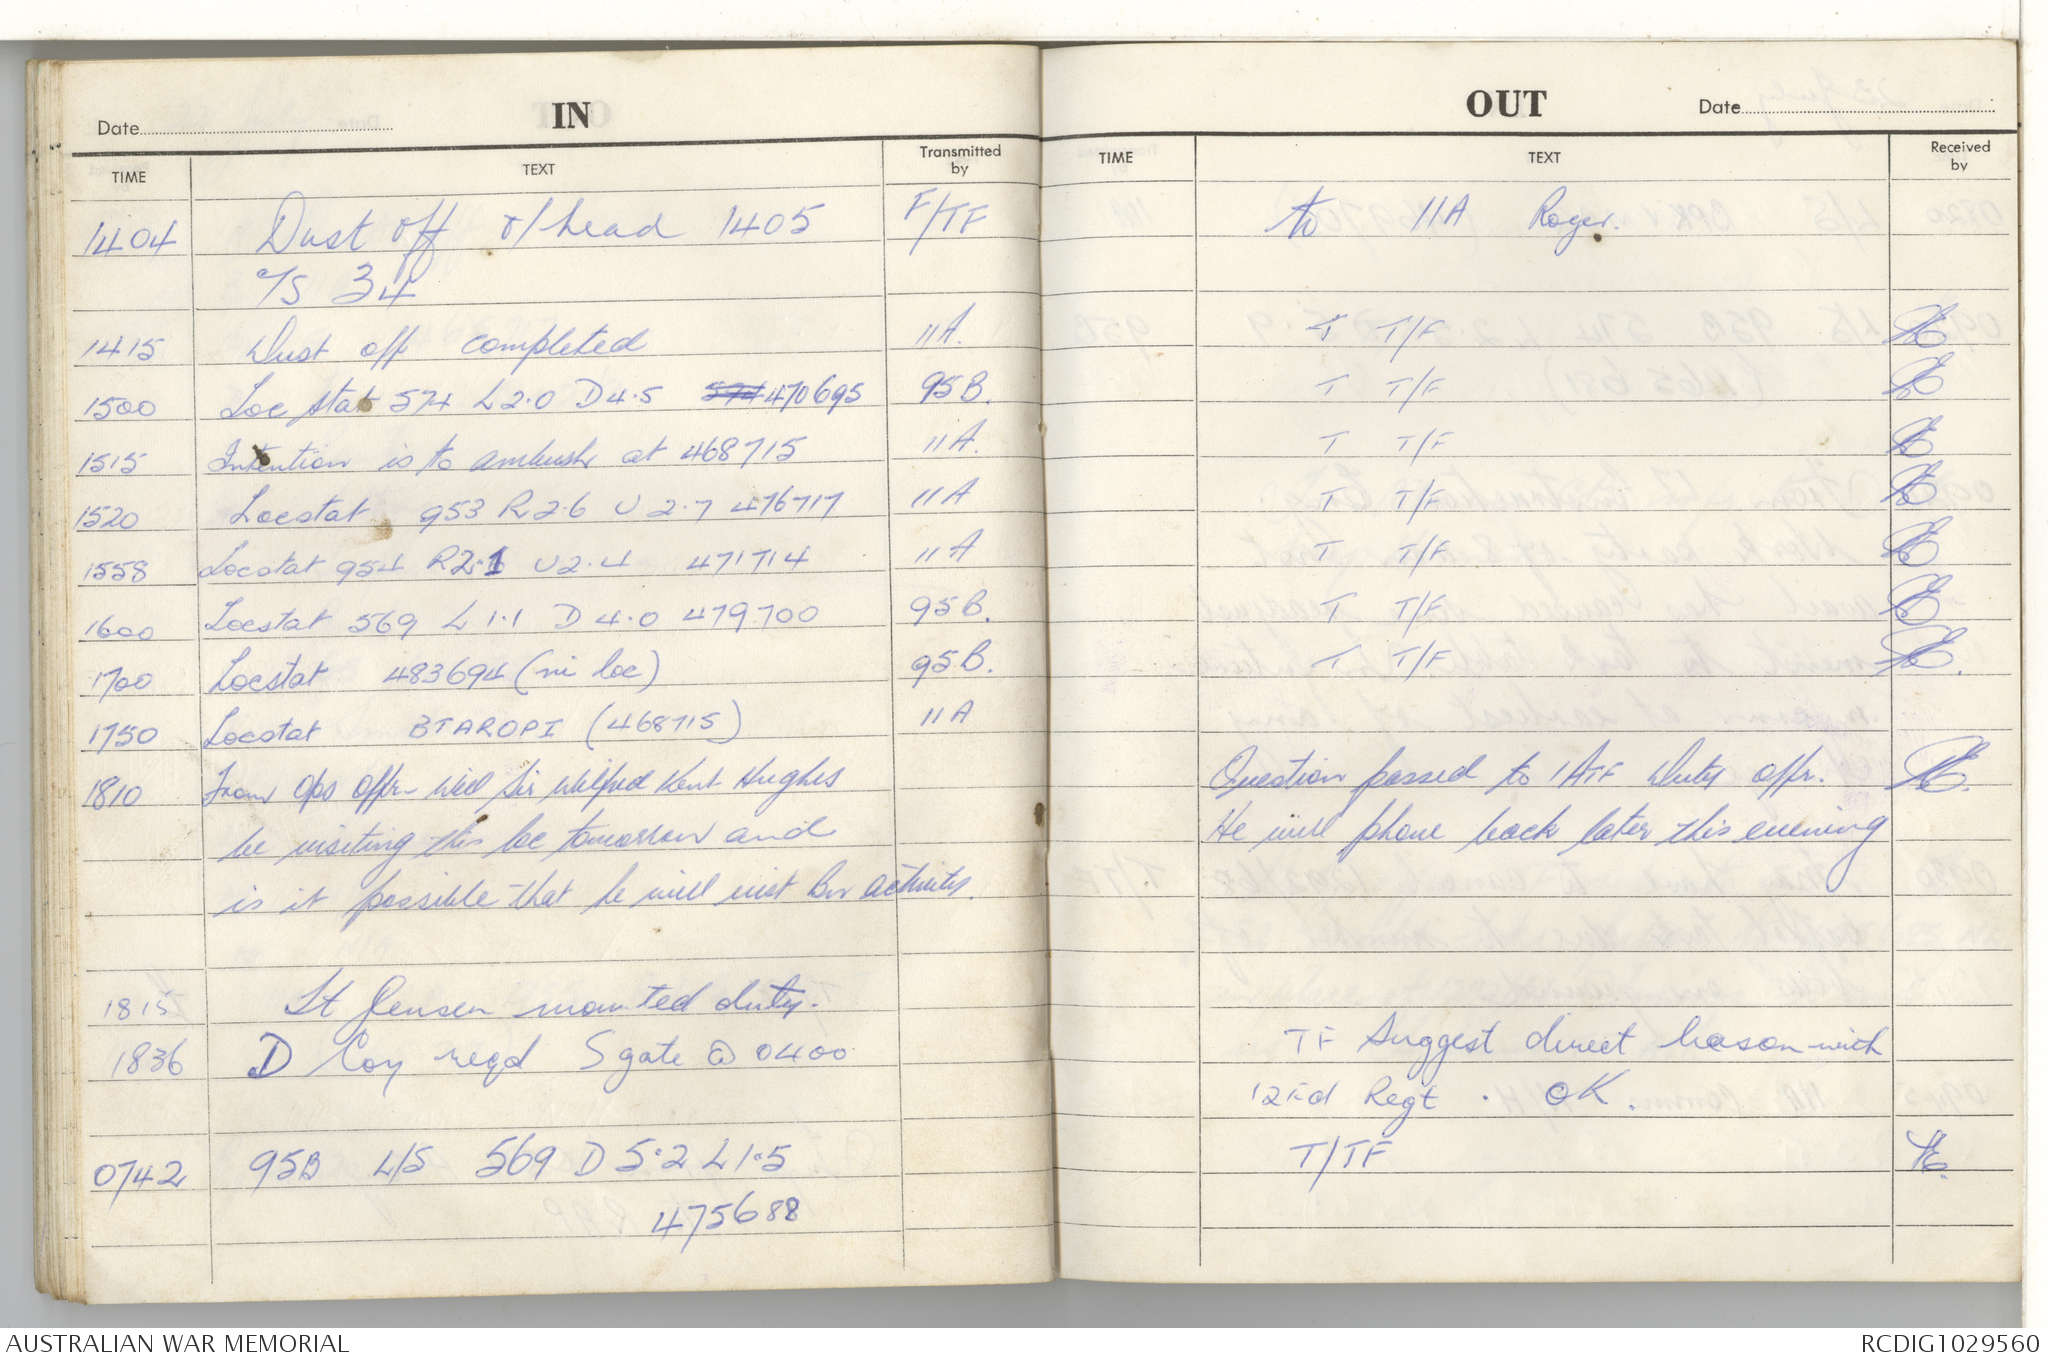 IN
Date
TIME TEXT Transmitted by
1404 Dust off o/head 1405 F/TF
c/s 34
1415 Dust off completed 11A.
1500 Loc stat 574 L2.0 D4.5 574 470695 95B.
1515 Intention is to ambush at 468715 11A.
1520 Locstat 953 R2.6 U2.7 476717 11A
1558 Locstat 954 R2.1 U2.4 471714 11A
1600 Locstat 569 L1.1 D4.0 479700 95B.
1700 Locstat 483694 (ni loc) 95B.
1750 Locstat BTAROPI (468715) 11A
1810 From Ops Offr - Will Sir Wilfred Kent Hughes
be visiting this loc tomorrow and
is it possible that he will visit Bn activities.
1815 Lt Jensen mounted duty.
1836 D Coy reqd S gate @ 0400
0742 95B L/S 569 D5.2 L1.5
475688
OUT
Date
TIME TEXT Received by
to 11A Roger.
T T/F
T T/F
T T/F
T T/F
T T/F
T T/F
T T/F
Question passed to 1ATF Duty offr.
He will phone back later this evening
TF Suggest direct liason with
12 Fd Regt. OK.
T/TF
AUSTRALIAN WAR MEMORIAL
RCDIG1029560